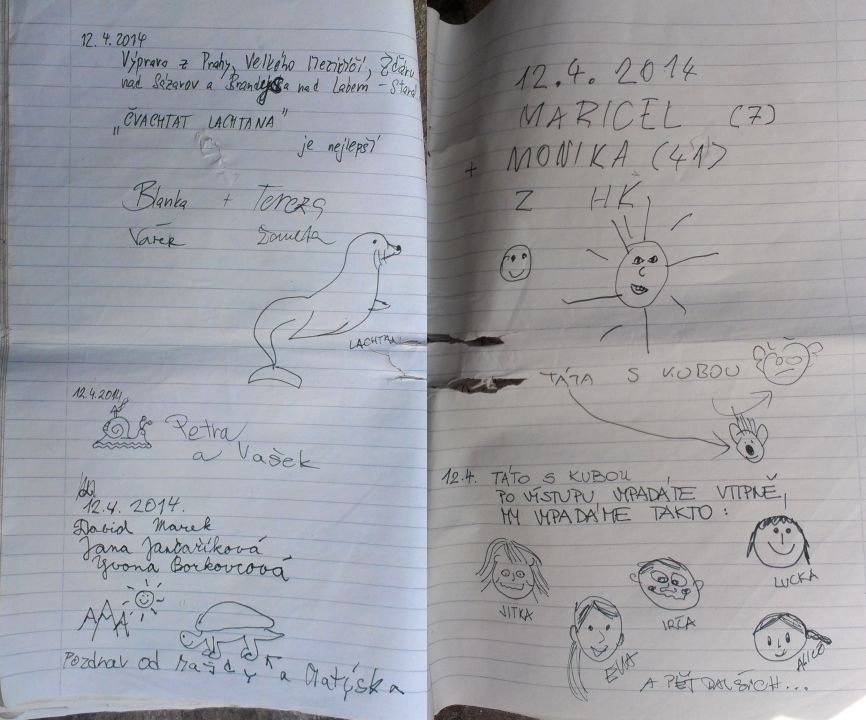 12.4.2014
Výprava z Prahy, Velkého Meziříčí, Žďáru
nad Sázavou a Brandýsa nad Labem - Stará
"ČVACHTAT LACHTANA"
je nejlepší
Blanka + Tereza
Vašek Žaneta
LACHTAN
12.4.2014
Petra
a Vašek
12.4. 2014.
David Marek
Jana Jančaříková
Yvona Borkovcová
Pozdrav od Majdy a Matýska
12.4. 2014
MARICEL (7)
+ MONIKA (41)
Z HK
TÁTA S KUBOU
12.4. TÁTO S KUBOU
PO VÝSTUPU VYPADÁTE VTIPNĚ,
MY VYPADÁME TAKTO:
JITKA
EVA
IRČA
LUCKA
ALICE
A PĚT DALŠÍCH...